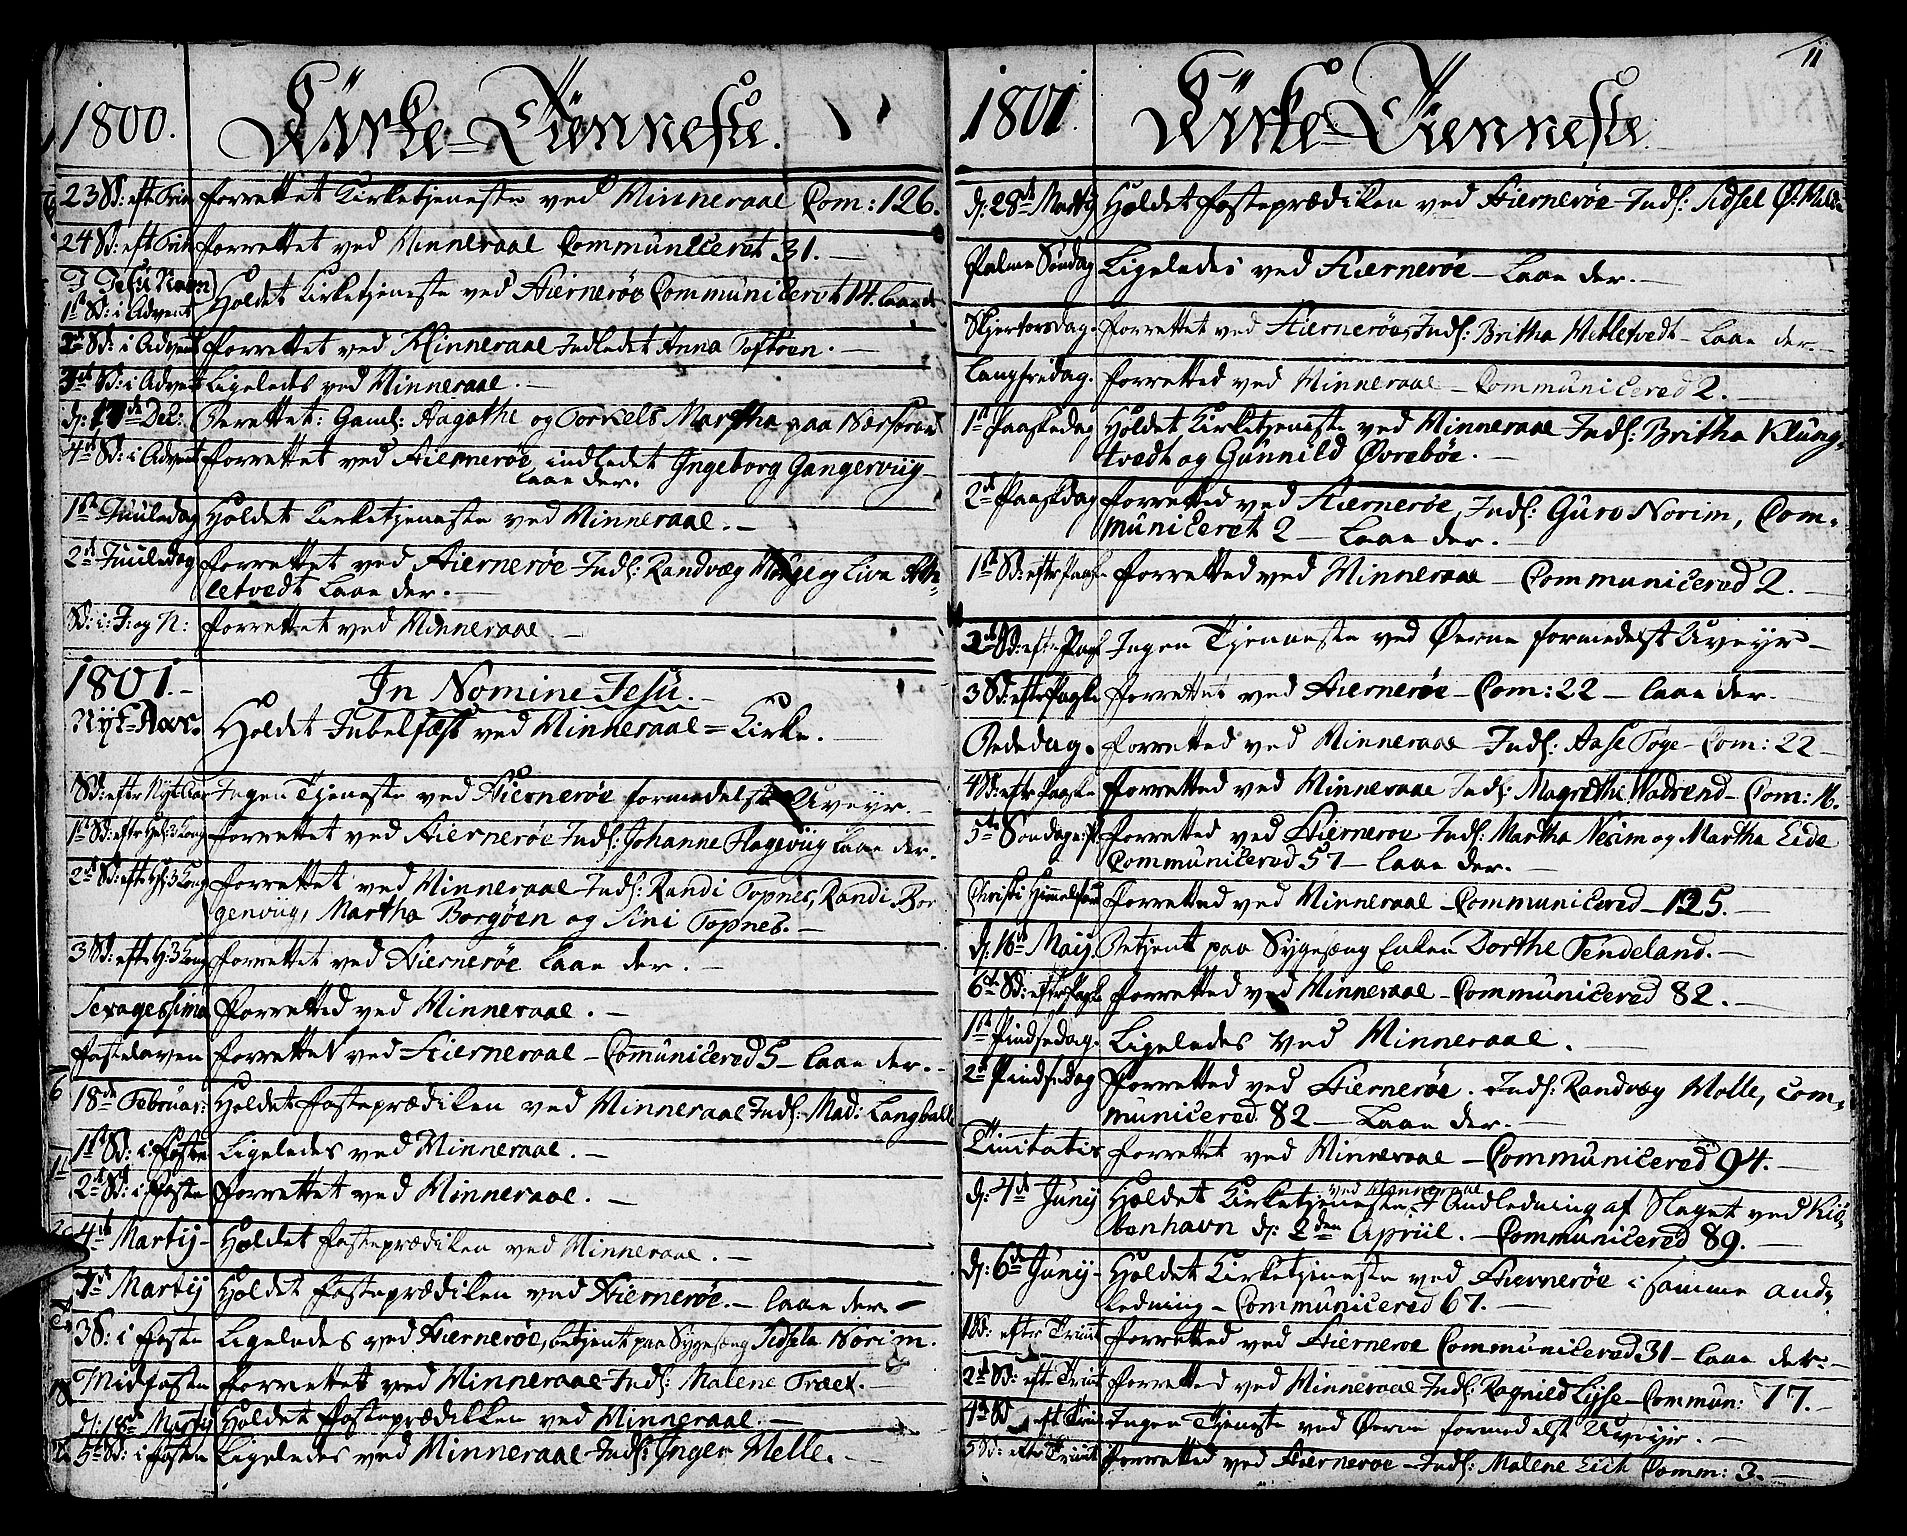 1800. Kirke-Tiænneste.
23 Sd: eft Trin forrettet Kirketjeneste ved Minneraal Com: 126.
24 Sd: eft Trin forrettet ved Minneraal Communiceret 31. —
J Jesu Navn
1st Sd: i Advent Holdet Kirketjeneste ved Hiernerøe Communiceret 14. laae der
2d Sd: i Advent forrettet ved Minneraal Indledet Anna Toftøen. —
3d Sd: i Advent Ligeleds ved Minneraal. —
d: 17de Dec: Berettet: Gaml: Aagathe og Torkels Martha paa Nærstrand
4d Sd: i Advent forrettet ved Hiernerøe, indledet Ingeborg Gangerviig
laae der.
1st Juuledag Holdet Kirketjeneste ved Minneraal. —
2d Juuledag forrettet ved Hiernerøe Indl: Randvæg Mølle og Liva
letvedt laae der. —
Sd: i: J: og N: forrettet ved Minneraal —
1801. — In Nomine Jesu. —
Nyt-Aar. Holdet Jubelfæst ved Minneraal = Kirke. —
Sd: eftr Nyt Aar Ingen Tjeneste ved Hiernerøe formedelst Uveyr. —
1st Sd: eftr Hel: 3 Kong forrettet ved Hiernerøe Indl: Johanne Hageviig laae der.
2d Sd: eftr H: 3 Kong forrettet ved Minneraal Indl: Randi Topnes, Randi Bor
genviig, Martha Borgøen og Sini Topnes. —
3 Sd: eftr H: 3 Kong forrettet ved Hiernerøe laae der. —
Sexagessima forretted ved Minneraal. —
fastelaven forrettet ved Hierneraal — Communicered 5 — laae der. —
18de Februar: Holdet fasteprædiken ved Minneraal Indl: Mad: Langballe
1st Sd: i faste Ligeledes ved Minneraal. —
2d Sd: i faste forrettet ved Minneraal. —
4de Martij — Holdet fasteprædiken ved Minneraal. —
7de Martij Holdet fasteprædiken ved Hiernerøe. — laae der —
3 S: i faste Ligeledes ved Hiernerøe, betjent paa Sygesæng Sidsela Norim.
Midfasten forrettet ved Minneraal Indl: Malene Træet. —
d: 18de Martij Holdet fasteprædikken ved Minneraal. —
5t Sd: i fasten Ligeledes ved Minneraal Indl: Inger Melle. —
11
1801. Kirke-Tienneste.
d: 28de Martij Holdet fasteprædiken ved Hiernerøe Indl: Sidsel
Palme Søndag Ligeledes ved Hiernerøe — laae der. —
Skjertorsdag. forrettet ved Hiernerøe, Indl: Britha Mitletvedt — laae der. —
Langfredag. forretted ved Minneraal — Communicered 2. —
1st Paaskedag Holdet Kirketjeneste ved Minneraal Indl: Britha Klung,
tvedt og Gunnild Øvrebøe. —
2d Paaskdag forretted ved Hiernerøe, Indl: Guro Norim, Com-
municeret 2 — laae der. —
1st Sd: eftr Paaske forretted ved Minneraal — Communicered 2. —
2d Sd: eftr Paask Ingen Tjenneste ved Øerne formedelst Uveyr —
3 Sd: eftr Paaske forrettet ved Hiernerøe — Com: 22 — laae der. —
Bededag. forretted ved Minneraal — Indl: Aase Tøge — Com: 22 —
4 Sd: eftr Paaske forretted ved Minneraal Indl: Magrethe Wadrend — Com: 16.
5te Søndag e: P forretted ved Hiernerøe Indl: Martha Nesim og Martha Eide
Communicered 57 — laae der. —
Christi Himmelfard forretted ved Minneraal — Communicered — 125. —
d: 16de Maij. Betjent paa Sygesæng Enken Dorthe Tendeland. —
6te Sd: eftr Paaske forretted ved Minneraal — Communicered 82. —
1st Pindsedag. Ligeledes ved Minneraal. —
2d Pindsedag forretted ved Hiernerøe. Indl: Randvæg Molle, com-
municered 82 — Laae der. —
Trinitatis forrettet ved Minneraal — Communicered 94. —
d: 4de Junij Holdet Kirketjeneste ved Minneraal i Andledning af Slaget ved Kiø,
benhavn d: 2den Apriil. — Communicered 89. —
d: 6de Junij — Holdet Kirketjeneste ved Hiernerøe i samme and,
ledning — Communicered 67. —
1 Sd: eftr Trinit forretted ved Hiernerøe Communicered 31 — laae der. —
2d Sd: eftr Trinit forretted ved Minneraal Indl: Ragnild Lysse — Commun: 17. —
4de Sd eft Trin Ingen Tjeneste ved Øerne formedelst Uveyr. —
5 Sd: eftr Trinit forretted ved Hiernerøe — Indl: Malene Eich Comm: 3. —